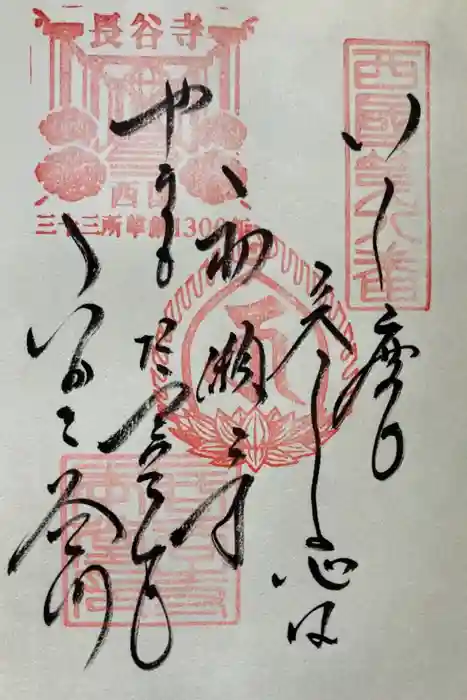 西國第八番
いく度も
参る心は
初瀬寺
やまも
ちかひも
ふかき谷川
長谷寺
西国
三十三所草創1300年